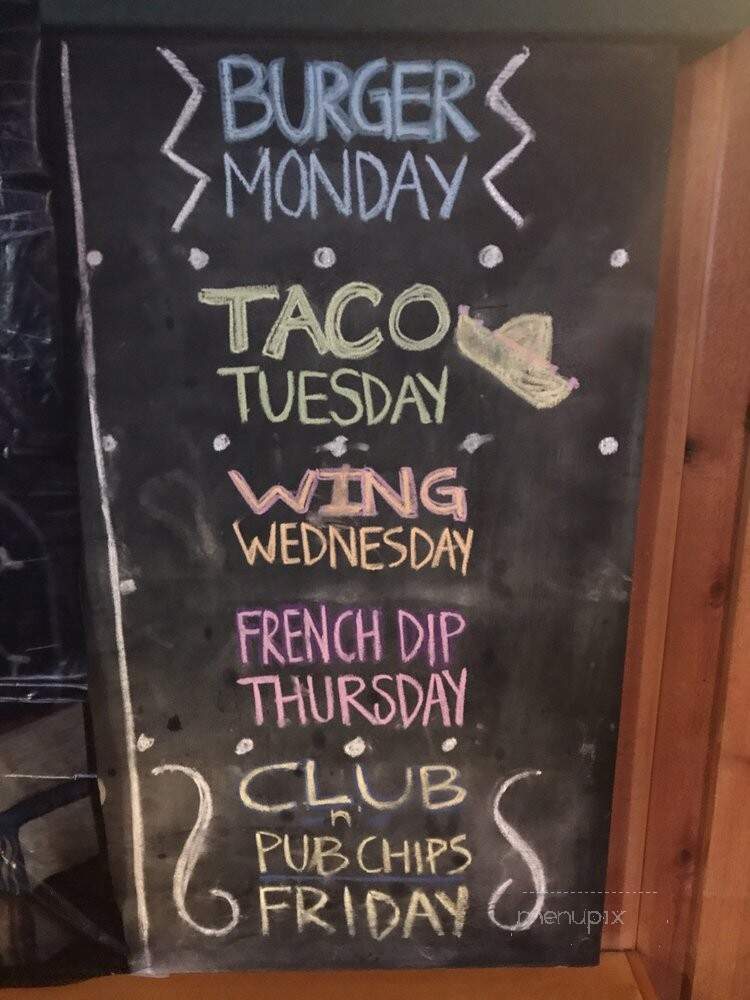 BURGER
MONDAY
TACO
TUESDAY
WING
WEDNESDAY
FRENCH DIP
THURSDAY
CLUB
n
PUB CHIPS
FRIDAY
menupix